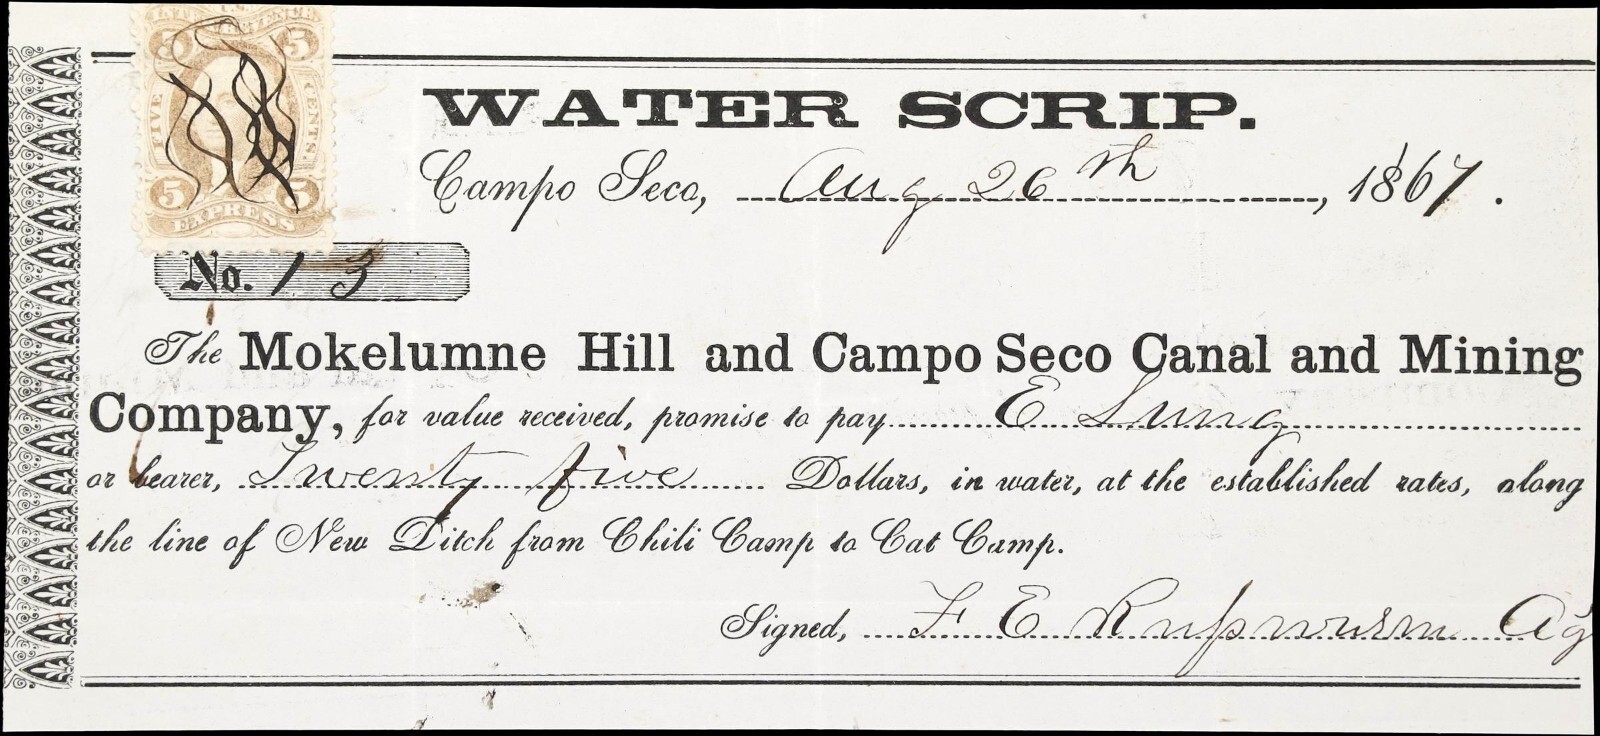 U.S. INTER. REVENUE
5 5
FIVE CENTS.
5 5
EXPRESS
WATER SCRIP.
Campo Seco, Aug 26th, 1867.
No. 13
The Mokelumne Hill and Campo Seco Canal and Mining
Company, for value received, promise to pay E Lung
or bearer, Twenty five Dollars, in water, at the established rates, along
the line of New Ditch from Chili Camp to Cat Camp.
Signed, F E Rupwurm Ag